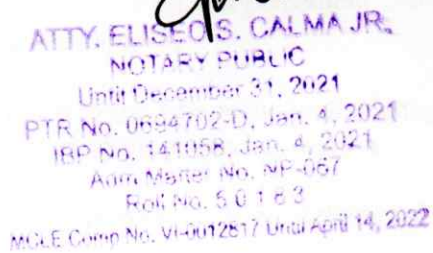 ATTY. ELISEO S. CALMA JR.
NOTARY PUBLIC
Until December 31, 2021
PTR No. 0694702-D, Jan. 4, 2021
IBP No. 141058, Jan. 4, 2021
Adm Matter No. NP-067
Roll No. 5 0 1 8 3
MCLE Comp No. VI-0012817 Until April 14, 2022